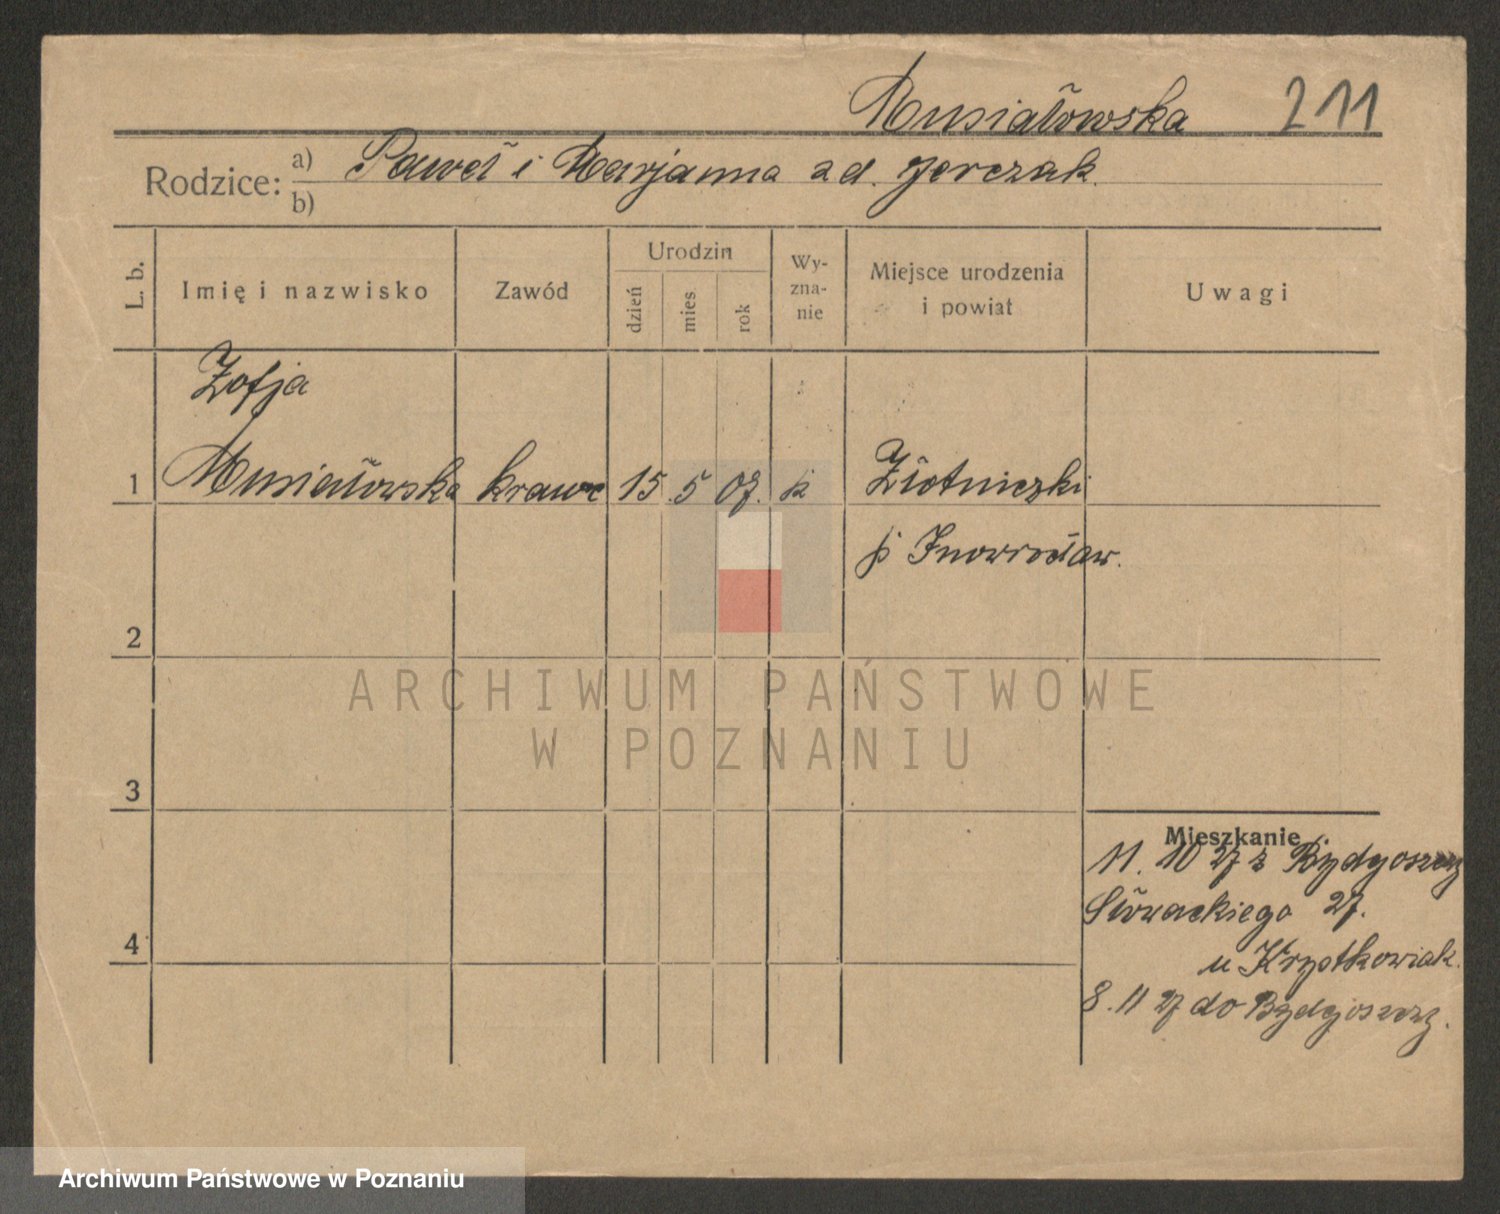 Musiałowska 211
Rodzice: a) Paweł i Marjanna zd. Jerczak.
b)
L. b. Imię i nazwisko Zawód Urodzin dzień mies rok Wy-zna-nie Miejsce urodzenia i powiat Uwagi
Zofja
1 Musiałowska krawc 15 5 07. k Złotniczki
p Inowrocław.
2
ARCHIWUM PAŃSTWOWE
W POZNANIU
3
Mieszkanie
11. 10 27 z Bydgoszczy
Słowackiego 27.
4
u Krystkowiak.
8. 11 27 do Bydgoszczy.
Archiwum Państwowe w Poznaniu